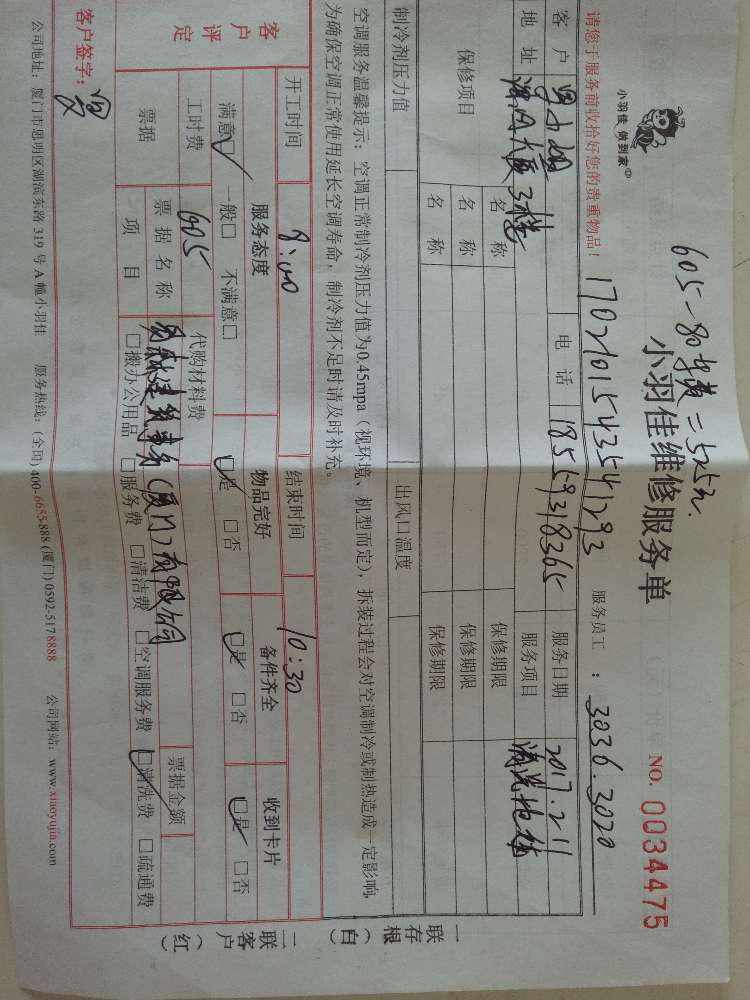 605-80车费=525元
小羽佳 做到家
小羽佳维修服务单
NO. 0034475
17021015435541293
服务员工：3036.3020
请您于服务前收拾好您的贵重物品！
客户 电话 18559318365 服务日期 2017.2.11
地址 大厦3楼 服务项目 清洗地毯
保修项目 名称 保修期限
名称 保修期限
名称 保修期限
制冷剂压力值 出风口温度
空调服务温馨提示：空调正常制冷剂压力值为0.45mpa（视环境、机型而定），拆装过程会对空调制冷或制热造成一定影响，
为确保空调正常使用延长空调寿命，制冷剂不足时请及时补充。
开工时间 8:00 结束时间 10:30
客户评定 服务态度 物品完好 备件齐全 收到卡片
满意☑ 一般□ 不满意□ ☑是 □否 ☑是 □否 ☑是 □否
工时费 605 代购材料费 票据金额
票据 票据名称 建筑事务（厦门）有限公司
项目 □搬办公用品 □服务费 □清洁费 □空调服务费 ☑清洗费 □疏通费
客户签字：
公司地址：厦门市思明区湖滨东路319号A幢小羽佳 服务热线：(全国)400-6655-888 (厦门)0592-5178888 公司网站：www.xiaoyujia.com
一存根（白）
二联客户（红）
联